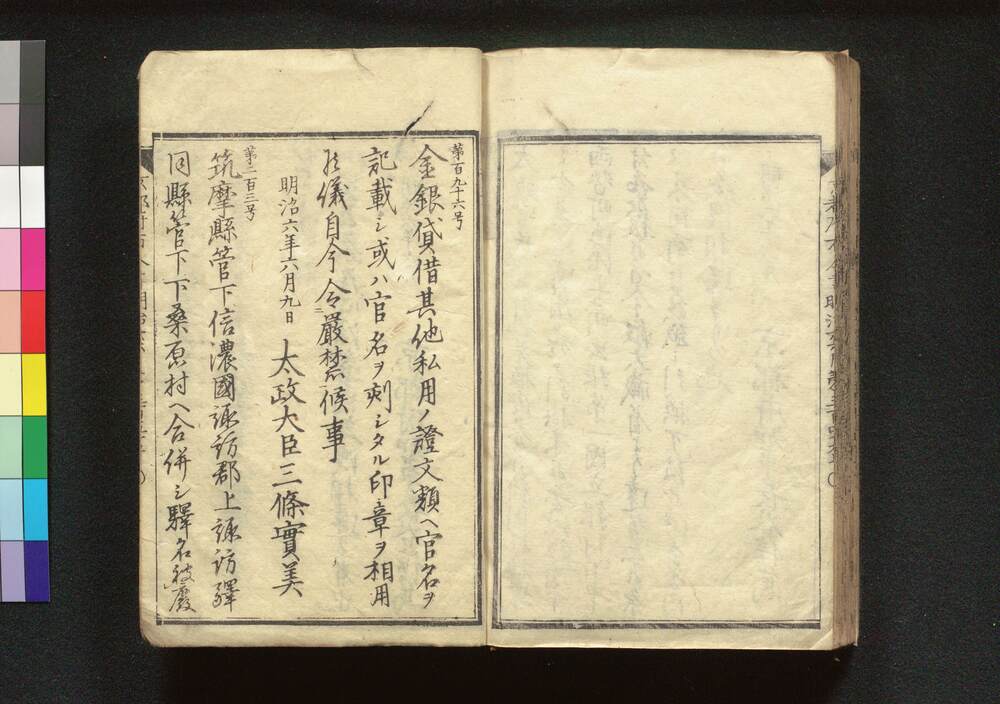 第百九十六号
金銀貸借其他私用ノ證文類ヘ官名ヲ
記載シ或ハ官名ヲ刻シタル印章ヲ相用
候儀自今令嚴禁候事
明治六年六月九日　太政大臣三條實美
第二百三号
筑摩縣管下信濃國諏訪郡上諏訪驛
同縣管下下桑原村ヘ合併シ驛名被廢